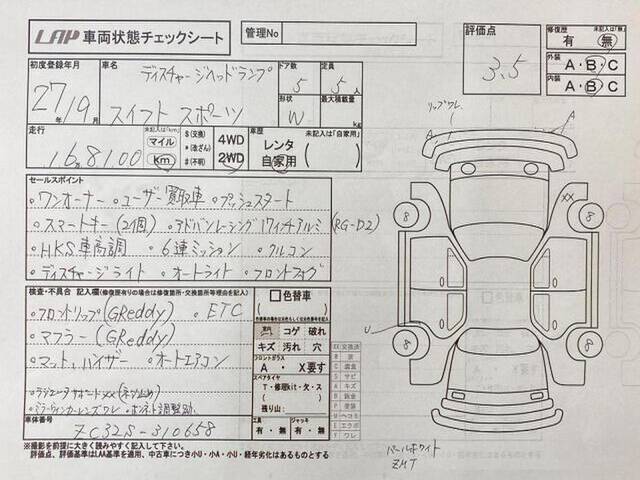 LAP 車両状態チェックシート
管理No
評価点
3.5
修復歴 未記入は「無」
有 無
外装 A・B・C
内装 A・B・C
初度登録年月
27年 9月
車名
ディスチャージヘッドランプ
スイフト スポーツ
ドア数
5
定員
5人
形状
W
最大積載量
kg
走行 未記入は「km」
16万8100
マイル
km
$(交換)
*(改ざん)
#(不明)
4WD
2WD
車歴 未記入は「自家用」
レンタ
自家用
セールスポイント
・ワンオーナー ・ユーザー買取車 ・プッシュスタート
・スマートキー(2個) ・アドバンレーシング17インチアルミ(RG-D2)
・HKS車高調 ・6速ミッション ・クルコン
・ディスチャージライト ・オートライト ・フロントフォグ
検査・不具合 記入欄(修復歴有りの場合は修復箇所・交換箇所等理由を記入)
・フロントリップ(GReddy) ・ETC
・マフラー(GReddy)
・マット、バイザー ・オートエアコン
・ラジエータサポートXX(ネジ止め)
色替車
コゲ 破れ
キズ 汚れ 穴
フロントガラス
A ・ X要す
スペアタイヤ
T・修理kit・欠・ス
残り山:
工具
有・無
ジャッキ
有・無
XX 交換済
車体番号
ZC32S-310658
※撮影を前提に大きく読みやすく記入して下さい。
評価点、評価基準はLAA基準を適用、中古車につき小U・小A・小U・経年劣化はあるものとする
リップワレ
A
A
XX
8
8
8
8
U
パールホワイト
ZMT